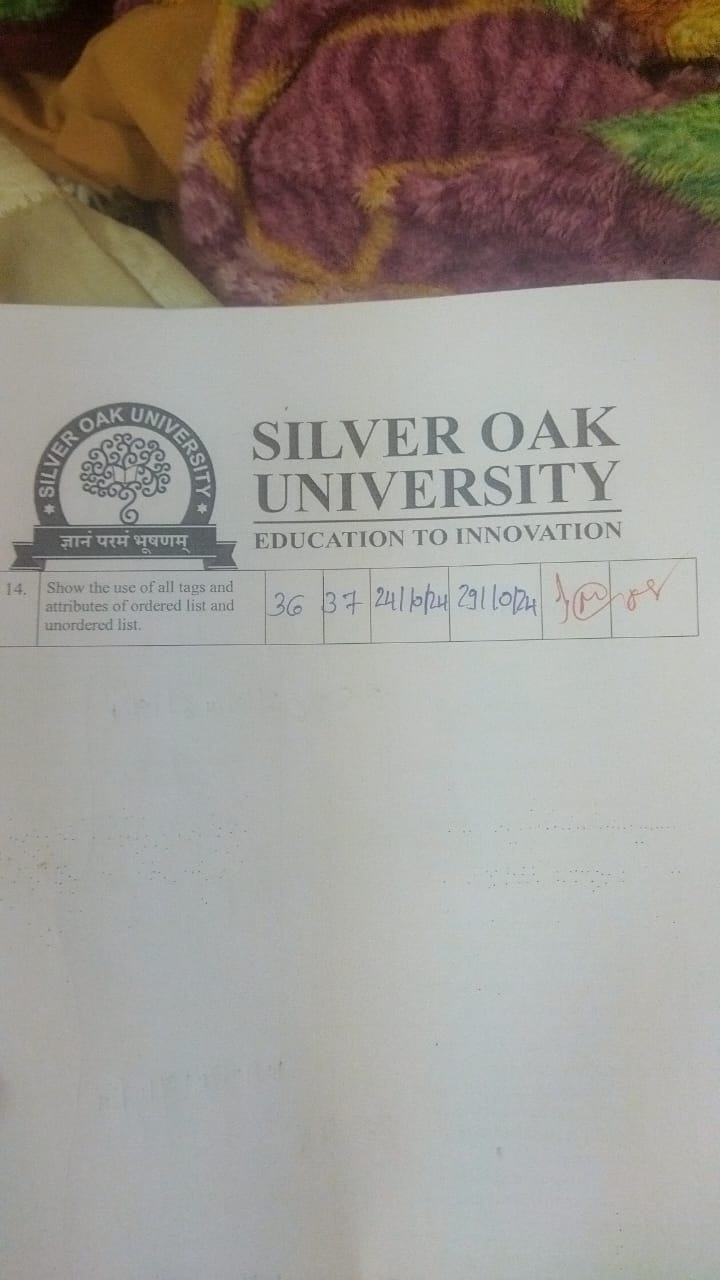 SILVER OAK UNIVERSITY
ज्ञानं परमं भूषणम्
SILVER OAK
UNIVERSITY
EDUCATION TO INNOVATION
14. Show the use of all tags and
attributes of ordered list and
unordered list.
36 37 24/10/24 29/10/24